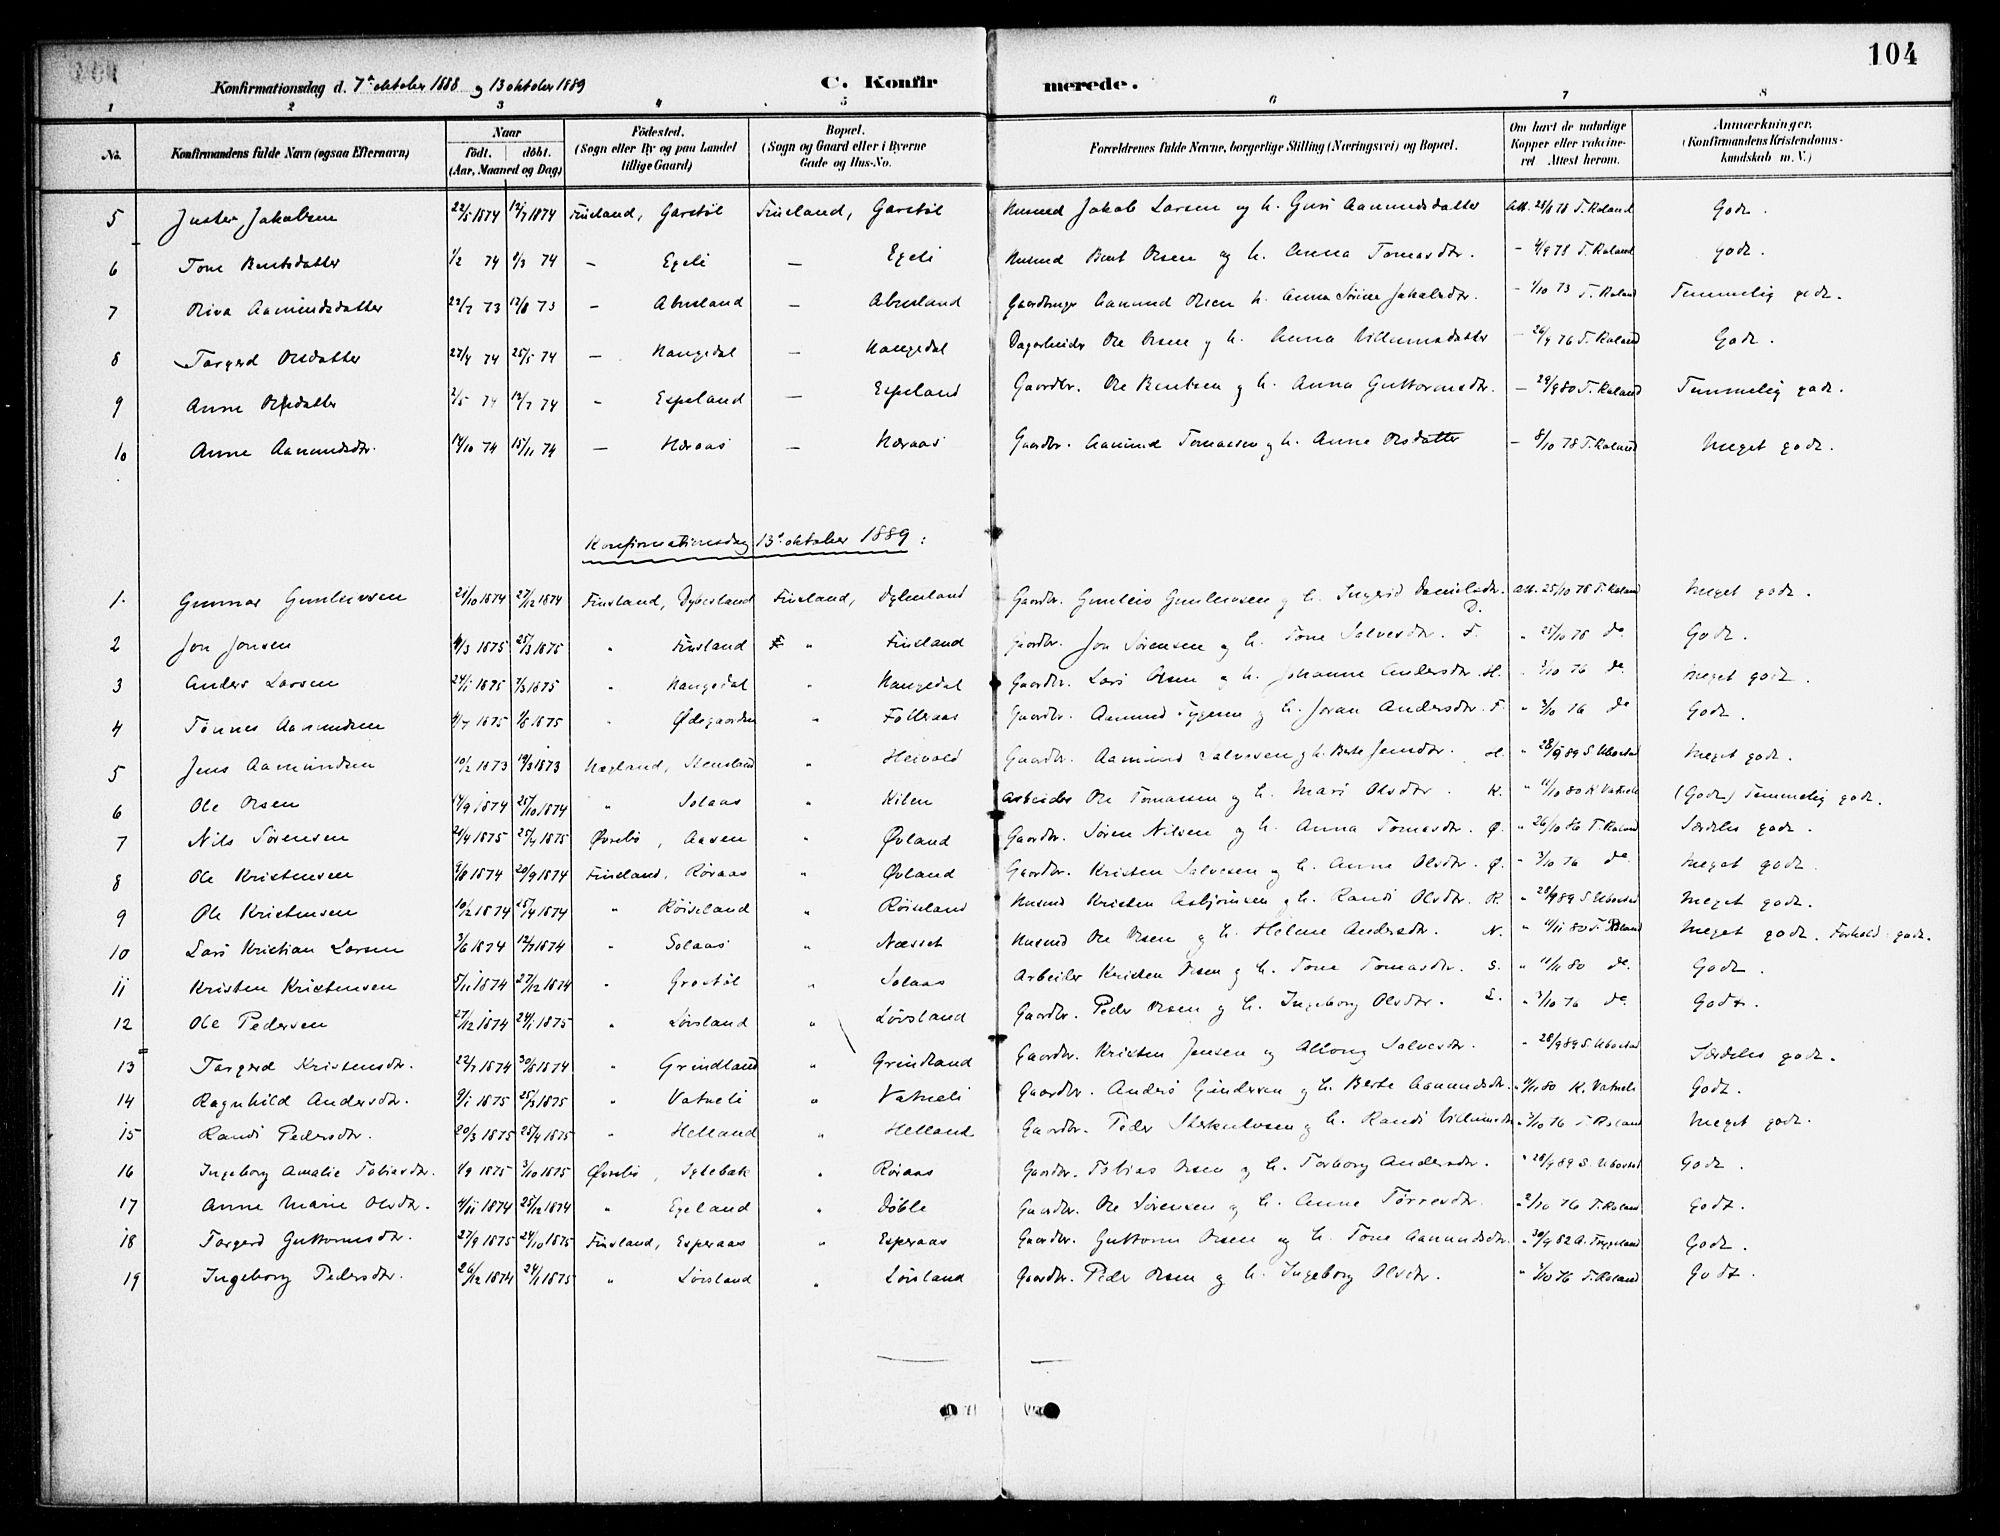 104
Konfirmationsdag d. 7de oktober 1888 og 13 oktober 1889 C. Konfirmerede.
1 2 3 4 5 6 7 8
No. Konfirmandens fulde Navn (ogsaa Efternavn) Naar født. døbt. (Aar, Maaned og Dag) Fødested. (Sogn eller By og paa Landet tillige Gaard) Bopæl. (Sogn og Gaard eller i Byerne Gade og Hus-No. Forældrenes fulde Navne, borgerlige Stilling (Næringsvei) og Bopæl. Om havt de naturlige Kopper eller vaccineret Attest herom. Anmærkninger. (Konfirmandens Kristendomskundskab m. V.)
5 Jakobsen 22/5 1874 12/7 1874 Finsland, Garstøl Finsland, Garstøl Husmd Jakob Larsen og h. Guri Aamundsdatter Att. 28/6 78 T. Roland Godt.
6 Tone Bentsdatter 1/2 74 8/3 74 — Egeli — Egeli Husmd Bent Olsen og h. Anna Tomasdtr. — 4/9 78 T. Roland godt.
7 Aamundsdatter 22/7 73 17/8 73 — Abusland — Abusland Gaardbruger Aamund Olsen h. Anna Sørine Jakobsdtr. — 1/10 73 T. Roland Temmelig godt.
8 Torgerd Olsdatter 27/4 74 25/5 74 — Haugedal — Haugedal Dagarbeider Ole Olsen og h. Anna Villumsdatter — 26/9 76 T. Roland Godt.
9 Anne Olsdatter 2/5 74 12/7 74 — Espeland — Espeland Gaardbr. Ole Bentsen og h. Anna Guttormsdtr. — 29/9 80 T. Roland Temmelig godt.
10 Anne Aamundsdtr. 14/10 74 15/11 74 — Heraas — Heraas Gaardbr. Aamund Tomassen og h. Anne Olsdatter — 8/10 78 T. Roland Meget godt.
Konfirmationsdag 13de oktober 1889:
1. Gunnar Gunleivsen 21/10 1874 27/12 1874 Finsland, Dybesland Finsland, Dybesland Gaardbr. Gunleiv Gunleivsen og h. Ingerid Danielsdtr. D. Att. 25/10 78 T. Roland Meget godt.
2 Jon Jonsen 4/3 1875 25/3 1875 " Finsland " Finsland Gaardbr. Jon Sørensen og h. Tone Salvesdtr. F. " 25/10 78 do Godt.
3 Anders Larsen 24/1 1875 7/3 1875 " Haugedal " Haugedal Gaardbr. Lars Olsen og h. Johanne Andersdtr. H. " 3/10 76 do Meget godt.
4 Tønnes Aamundsen 4/7 1875 1/8 1875 " Ødegaarden " Folleraas Gaardbr. Aamund og h. Joran Andersdtr. F. " 3/10 76 do Godt.
5 Jens Aamundsen 10/2 1873 19/3 1873 Hægland, Stensland " Heivold Gaardbr. Aamund Salvesen og h. Berte Jensdtr. H. " 28/9 89 S. Ubostad Meget godt.
6 Ole Olsen 14/9 1874 25/10 1874 " Solaas " Kilen Arbeider Ole Tomassen og h. Mari Olsdtr. K. " 11/10 80 K. Vatneli (Godt) Temmelig godt.
7 Nils Sørensen 21/4 1875 25/4 1875 Øvrebø, Aasen " Øvland Gaardbr. Søren Nilsen og h. Anna Tomasdtr. Ø. " 26/10 86 T. Roland Særdeles godt.
8 Ole Kristensen 9/8 1874 20/9 1874 Finsland, Røraas " Øvland Gaardbr. Kristen Salvesen og h. Anne Olsdtr. Ø. " 3/10 76 do Meget godt.
9 Ole Kristensen 10/2 1874 25/4 1874 " Røiseland " Røiseland Husmd Kristen Asbjørnsen og h. Randi Olsdtr. R. " 28/9 89 S. Ubostad Meget godt.
10 Lars Kristian Larsen 3/6 1874 12/7 1874 " Solaas " Næsset Husmd Ole Olsen og h. Helene Andersdtr. N. " 11/11 80 T. Roland Meget godt. Forhold godt.
11 Kristen Kristensen 5/11 1874 27/12 1874 " Grostøl " Solaas Arbeider Kristen Olsen og h. Tone Tomasdtr. S. " 11/11 80 do. Godt.
12 Ole Pedersen 27/12 1874 24/1 1875 " Løvsland " Løvsland Gaardbr. Peder Olsen og h. Ingeborg Olsdtr. L. " 3/10 76 do Godt.
13 Torgerd Kristensdtr. 22/7 1874 30/8 1874 " Grindland " Grindland Gaardbr. Kristen Jensen og Allong Salvesdtr. " 28/9 89 S. Ubostad Særdeles godt.
14 Ragnhild Andersdtr. 9/1 1875 25/3 1875 " Vatneli " Vatneli Gaardbr. Anders Gundersen og h. Berte Aanundsdtr. " 11/11 80 K. Vatneli Godt.
15 Randi Pedersdtr. 20/3 1875 25/4 1875 " Helland " Helland Gaardbr. Peder Sterkulvsen og h. Randi Villumsdtr " 3/10 76 T. Roland Meget godt.
16 Ingeborg Amalie Tobiasdtr. 1/9 1875 3/10 1875 Øvrebø, " Røraas Gaardbr. Tobias Olsen og h. Torborg Andersdtr. " 28/9 89 S. Ubostad Godt.
17 Anne Marie Olsdtr. 4/11 1874 25/12 1874 " Egeland " Døble Gaardbr. Ole Sørensen og h. Anne Tørresdtr. 2/10 76 T. Roland Godt.
18 Torgerd Guttormsdtr. 27/9 1875 24/10 1875 Finsland, Esperaas " Esperaas Gaardbr. Guttorm Olsen og h. Tone Aanundsdtr. " 30/9 82 A. Tryggland Godt.
19 Ingeborg Pedersdtr. 26/12 1874 24/1 1875 " Løvsland " Løvsland Gaardbr. Peder Olsen og h. Ingeborg Olsdtr. " 3/10 76 T. Roland Godt.